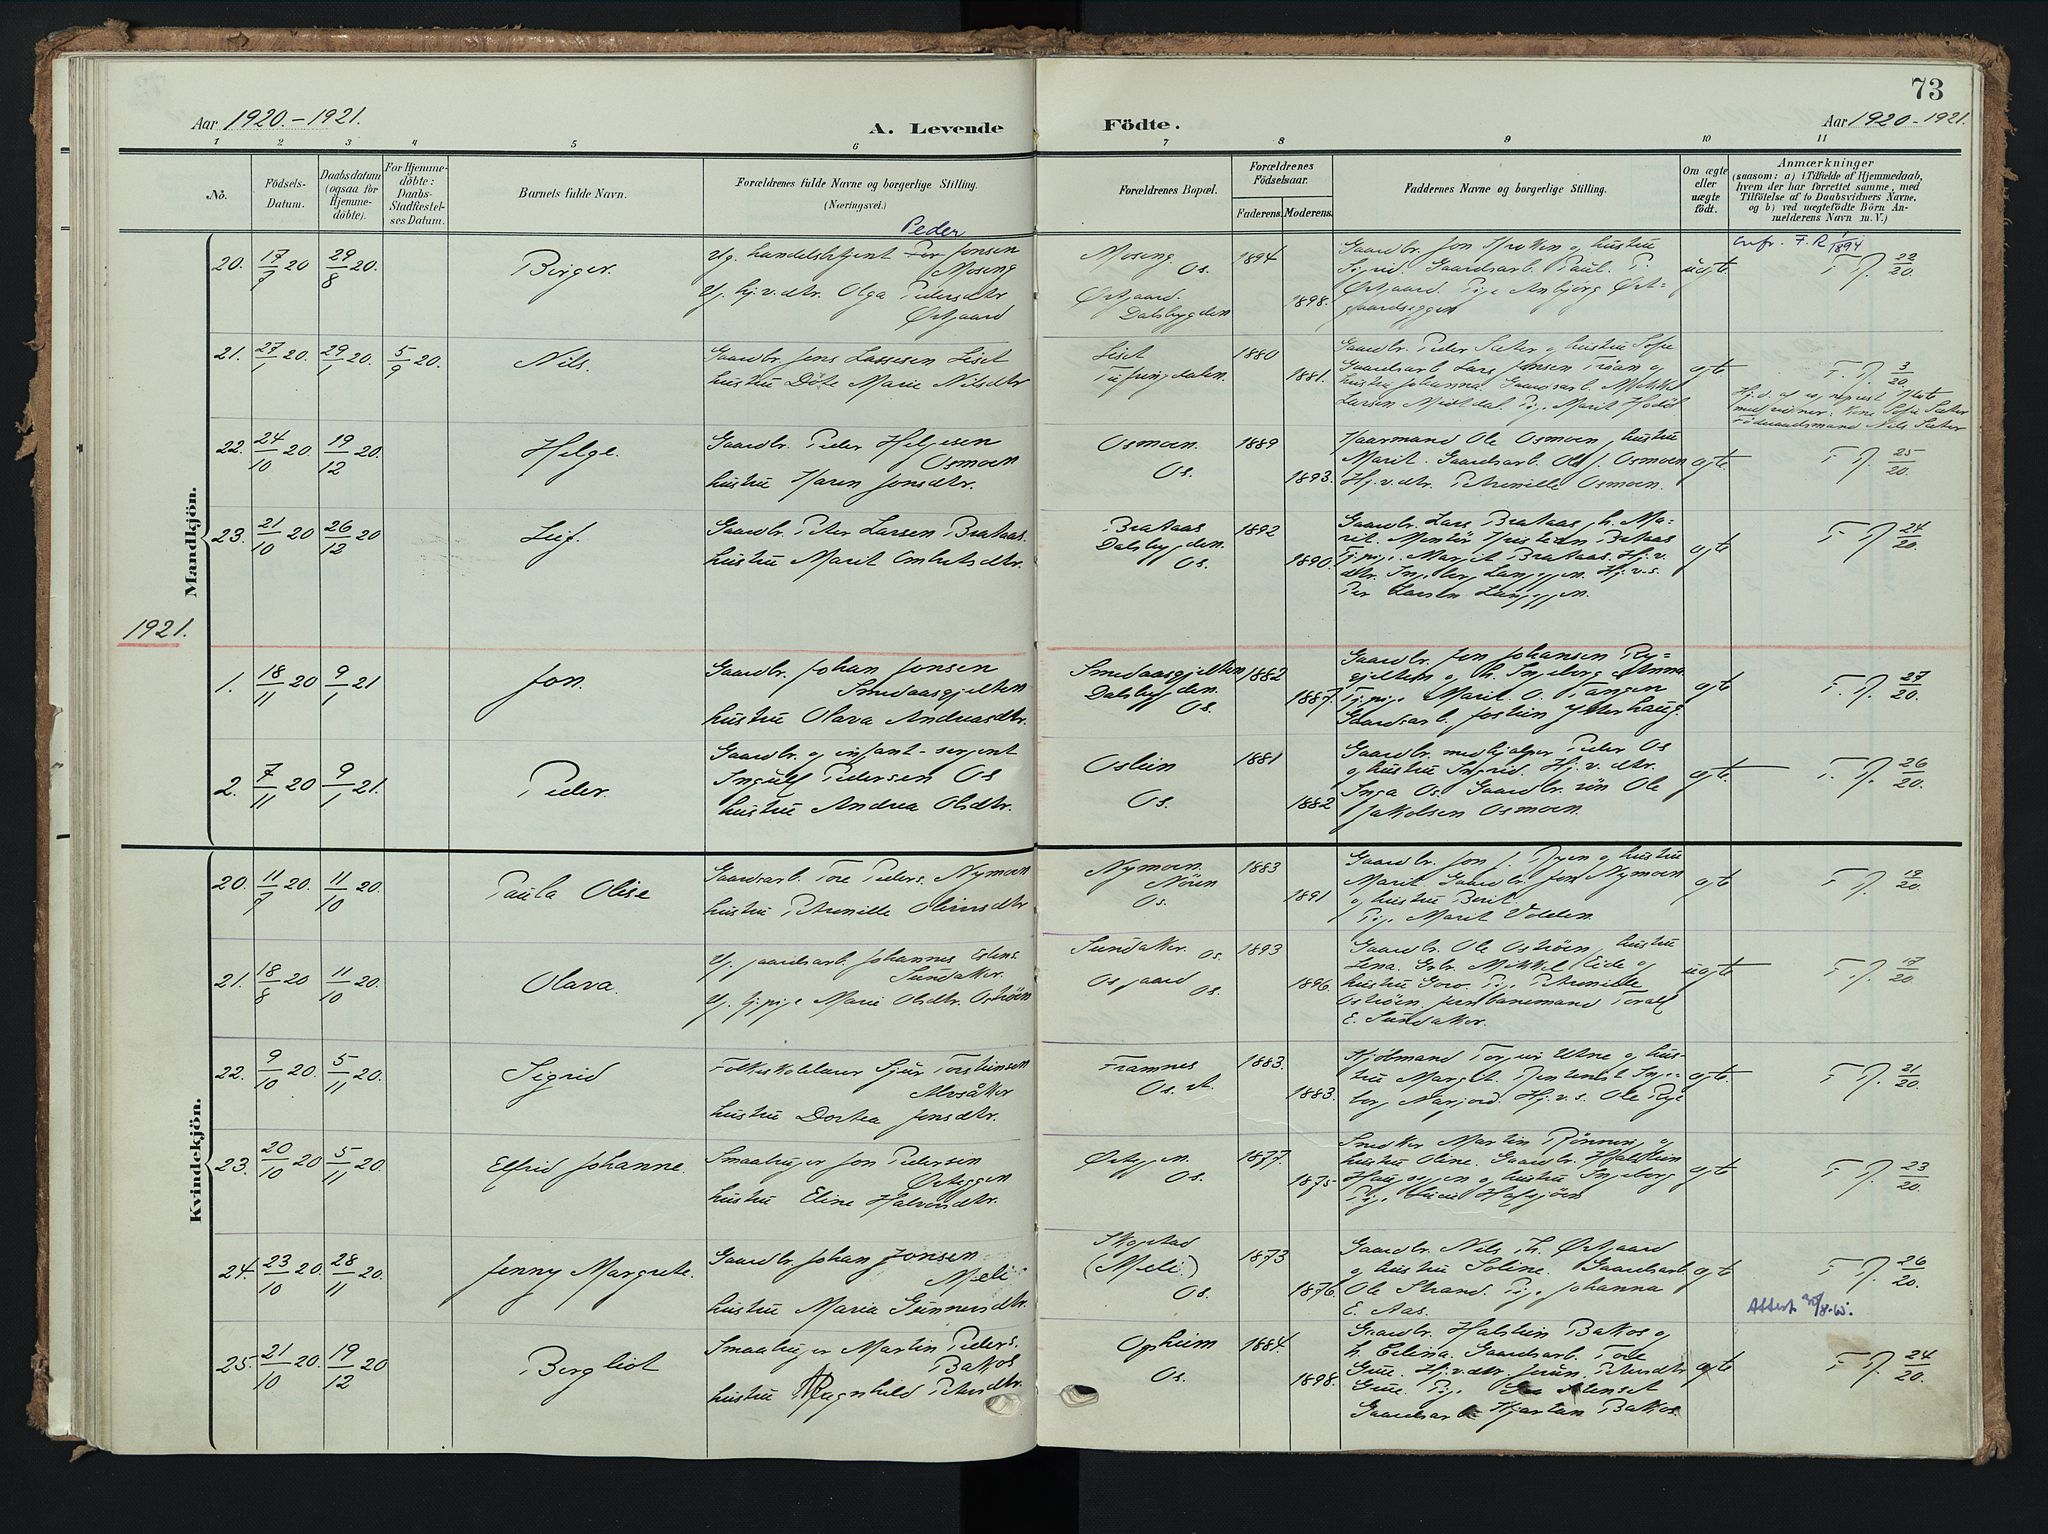 73
Aar 1920.-1921.
A. Levende
Födte.
Aar 1920-1921.
1 2 3 4 5 6 7 8 9 10 11
No.
Födsels-
Datum.
Daabsdatum
(ogsaa for
Hjemme-
döbte).
For Hjemme-
döbte:
Daabs-
Stadfæstel-
ses Datum.
Barnets fulde Navn.
Forældrenes fulde Navne og borgerlige Stilling.
(Næringsvei.)
Forældrenes Bopæl.
Forældrenes
Födselsaar.
Faderens. Moderens.
Faddernes Navne og borgerlige Stilling.
Om ægte
eller
uægte
födt.
Anmærkninger
(saasom: a) i Tilfælde af Hjemmedaab,
hvem der har forrettet samme, med
Tilföielse af to Daabsvidners Navne,
og b) ved uægtefödte Börn An-
melderens Navn m. V.)
Mandkjön.
20. 17/7 20 29/8 20. Birger.
Peder
Ug. handelsbetjent Per Jonsen
Moseng
Ug. hj.v.dtr. Olga Pedersdtr
Ørtgaard
Moseng
Os.
Ørtgaard.
Dalsbygden
1894
1898.
Gaardbr. Jon og hustru
Sigrid. Gaardsarb. Paul P.
Ørtgaard. Pige Anbjörg Ørt-
gaardseggen
uægte
1894
F. N. 22/20.
21. 27/1 20. 29/1 20. 5/9 20. Nils.
Gaardbr. Jens Lassesen Liset
hustru Döte Marie Nilsdtr
Liset
Tufsingdalen.
1880
1881.
Gaardbr. Peder Sæter og hustru Sofie
Gaardsarb. Lars Jensen Tröan og
hustru Johanna. Gaardsarb. Mikkel
Larsen Midtdal. Pige Marit
ægte
F. N. 3/20.
22. 24/10 20. 19/12 20. Helge.
Gaardbr. Peder Helgesen
Osmoen
hustru Karen Jonsdtr.
Osmoen.
Os.
1889
1893.
Haarmand Ole Osmoen, hustru
Marit. Gaardsarb. Ole J. Osmoen
Hj.v.dtr. Petrenille Osmoen.
ægte
F. N. 25/20.
23. 21/10 20 26/12 20 Leif.
Gaardbr. Peter Larsen Brataas.
hustru Marit Embretsdtr.
Brataas
Dalsbygden.
Os.
1892
1890.
Gaardbr. Lars Brataas, h. Ma-
rit. Montör Kristian Brataas
Tj.pige. Marjit Brataas. Hj.v.
dtr. Ingeborg Langeggen. Hj.v.s.
Per Larsen Langeggen.
ægte
F. N. 24/20.
1921.
1. 18/11 20 9/1 21 Jon.
Gaardbr. Johan Jonsen
Smedaasgjelten
hustru Olava Andreasdtr.
Smedaasgjelten
Dalsbygden.
Os.
1882
1887.
Gaardbr. Jon Johansen Ry-
gjelten og h. Ingeborg Anna
Tj.pige Marit O. Tangen
Gaardsarb. Jostein Ytterhaug.
ægte
F. N. 27/20.
2. 7/11 20 9/1 21. Peder.
Gaardbr. og infant-sergent
Ingulf Pedersen Os
hustru Andrea Olsdtr.
Oslien
Os.
1881
1882
Gaardbr. medhjelper Peder Os
og hustru Ingrid. Hj.v.dtr.
Inga Os. Gaardbr. sön Ole
Jakobsen Osmoen.
ægte.
F. N. 26/20.
Kvindekjön.
20. 11/7 20. 11/10 20. Paula Olise
Gaardsarb. Tore Peders. Nymoen
hustru Petrenille Olinusdtr
Nymoen.
Nören
Os.
1883
1891
Gaardbr. Jon J. Ryen og hustru
Marit. Gaardbr. Jon Nymoen
og hustru Berit.
Pige Marit Volden
ægte
F. N. 19/20.
21. 18/8 20 11/10 20. Olava.
Ug. gaardsarb. Johannes Estens.
Sundaker.
Ug. tj.pige Marie Olsdtr. Oströen
Sundaker. Os.
Osgaard
Os.
1893
1896.
Gaardbr. Ole Oströen, hustru
Lena. Gbr. Mikkel Eide og
hustru Goro. Pige Petrenille
Oströen, jernbanemand Toralf
E. Sundaker.
uægte
F. N. 17/20.
22. 9/10 20. 5/11 20. Sigrid
Folkeskolelærer Sjur Torsteinsen
Alvsåker
hustru Dortea Jonsdtr.
Framnes
Os. st.
1883.
1883.
Kjöbmand Torgeir Utne og hus-
tru Margit. Rentenist Inge-
borg Narjord. Hj.v.s. Ole Rye
ægte.
F. N. 21/20.
23. 20/10 20 5/11 20. Elfrid Johanne.
Smaabruger Jon Pedersen
Ørteggen
hustru Eline Halvorsdtr.
Ørteggen.
Os.
1877.
1875
Snedker Martin Rönning og
hustru Oline. Gaardbr. Halstein
Haugseggen og hustru Ingeborg
Pige
ægte
F. N. 23/20.
24. 23/10 20. 28/11 20. Jenny Margrete.
Gaardbr. Johan Jonsen
Meli
hustru Maria Gunnersdtr.
Skogstad
(Meli.)
Os.
1873
1876.
Gaardbr. Nils Th. Ørtgaard
og hustru Soline. Gaardsarb.
Ole Strand. Pige Johanna
E. Aas.
ægte
F. N. 26/20.
25. 21/10 20. 19/12 20 Bergliot
Smaabruger Martin Peders.
Bakos
hustru Magnhild Petersdtr.
Opheim
Os.
1884.
1898.
Gaardbr. Halstein Bakos og
h. Elina. Gaardsarb. Tore
Grue. Hj.v.dtr. Jörun Petersdtr
Grue. Pige
Gaardsarb. Kjartan Bakos.
ægte
F. N. 24/20.